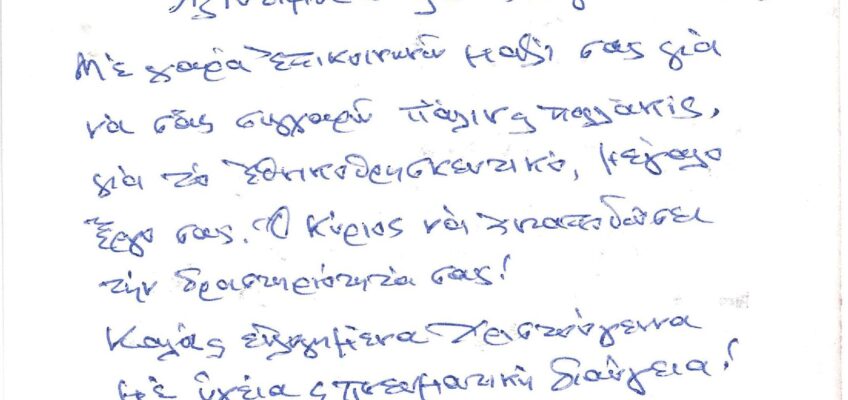 Μὲ χαρὰ ἐπικοινωνῶ μαζί σας γιὰ
νὰ σᾶς συγχαρῶ πάλιν ϛ πολλάκις,
γιὰ τὸ ἐθνικοθρησκευτικό, μεγάλο
ἔργο σας. Ὁ Κύριος νὰ
τὴν δραστηριότητά σας!
Καλὰς εὐλογημένα Χριστούγεννα
μὲ ὑγεία ϛ πνευματικὴ διαύγεια!